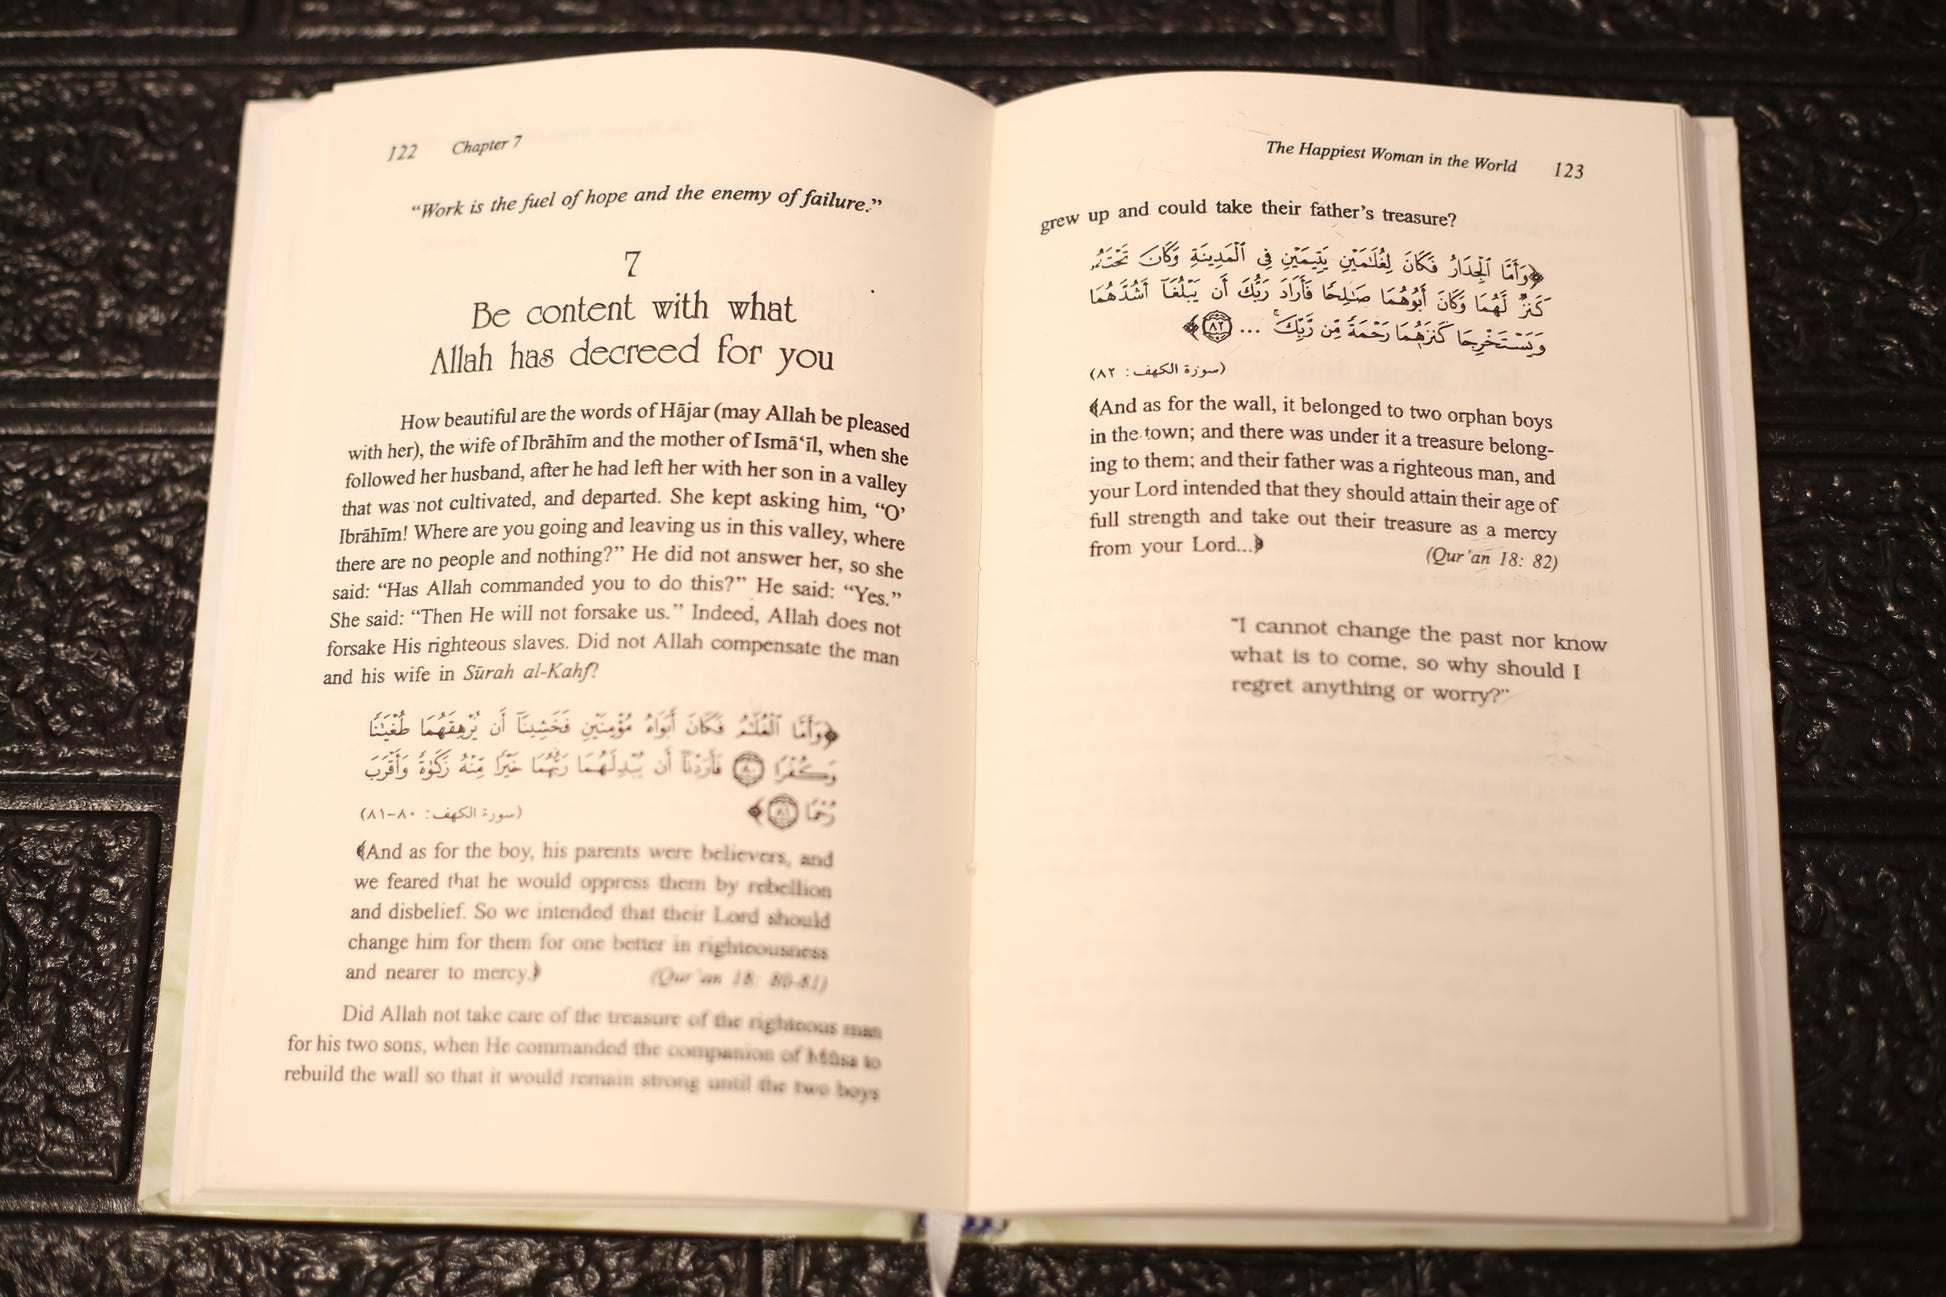 122 Chapter 7
“Work is the fuel of hope and the enemy of failure.”
7
Be content with what
Allah has decreed for you
How beautiful are the words of Hājar (may Allah be pleased
with her), the wife of Ibrāhīm and the mother of Ismā‘īl, when she
followed her husband, after he had left her with her son in a valley
that was not cultivated, and departed. She kept asking him, “O’
Ibrāhīm! Where are you going and leaving us in this valley, where
there are no people and nothing?” He did not answer her, so she
said: “Has Allah commanded you to do this?” He said: “Yes.”
She said: “Then He will not forsake us.” Indeed, Allah does not
forsake His righteous slaves. Did not Allah compensate the man
and his wife in Sūrah al-Kahf?
﴿وَأَمَّا ٱلْغُلَـٰمُ فَكَانَ أَبَوَاهُ مُؤْمِنَيْنِ فَخَشِينَآ أَن يُرْهِقَهُمَا طُغْيَـٰنًا
وَكُفْرًا ﴿٨٠﴾ فَأَرَدْنَآ أَن يُبْدِلَهُمَا رَبُّهُمَا خَيْرًا مِّنْهُ زَكَوٰةً وَأَقْرَبَ
رُحْمًا ﴿٨١﴾﴾ (سورة الكهف: ٨٠-٨١)
﴾And as for the boy, his parents were believers, and
we feared that he would oppress them by rebellion
and disbelief. So we intended that their Lord should
change him for them for one better in righteousness
and nearer to mercy.﴿ (Qur’an 18: 80-81)
Did Allah not take care of the treasure of the righteous man
for his two sons, when He commanded the companion of Mūsa to
rebuild the wall so that it would remain strong until the two boys
The Happiest Woman in the World 123
grew up and could take their father’s treasure?
﴿وَأَمَّا ٱلْجِدَارُ فَكَانَ لِغُلَـٰمَيْنِ يَتِيمَيْنِ فِى ٱلْمَدِينَةِ وَكَانَ تَحْتَهُۥ
كَنزٌ لَّهُمَا وَكَانَ أَبُوهُمَا صَـٰلِحًا فَأَرَادَ رَبُّكَ أَن يَبْلُغَآ أَشُدَّهُمَا
وَيَسْتَخْرِجَا كَنزَهُمَا رَحْمَةً مِّن رَّبِّكَ ۚ ... ﴿٨٢﴾﴾
(سورة الكهف: ٨٢)
﴾And as for the wall, it belonged to two orphan boys
in the town; and there was under it a treasure belong-
ing to them; and their father was a righteous man, and
your Lord intended that they should attain their age of
full strength and take out their treasure as a mercy
from your Lord...﴿ (Qur’an 18: 82)
“I cannot change the past nor know
what is to come, so why should I
regret anything or worry?”